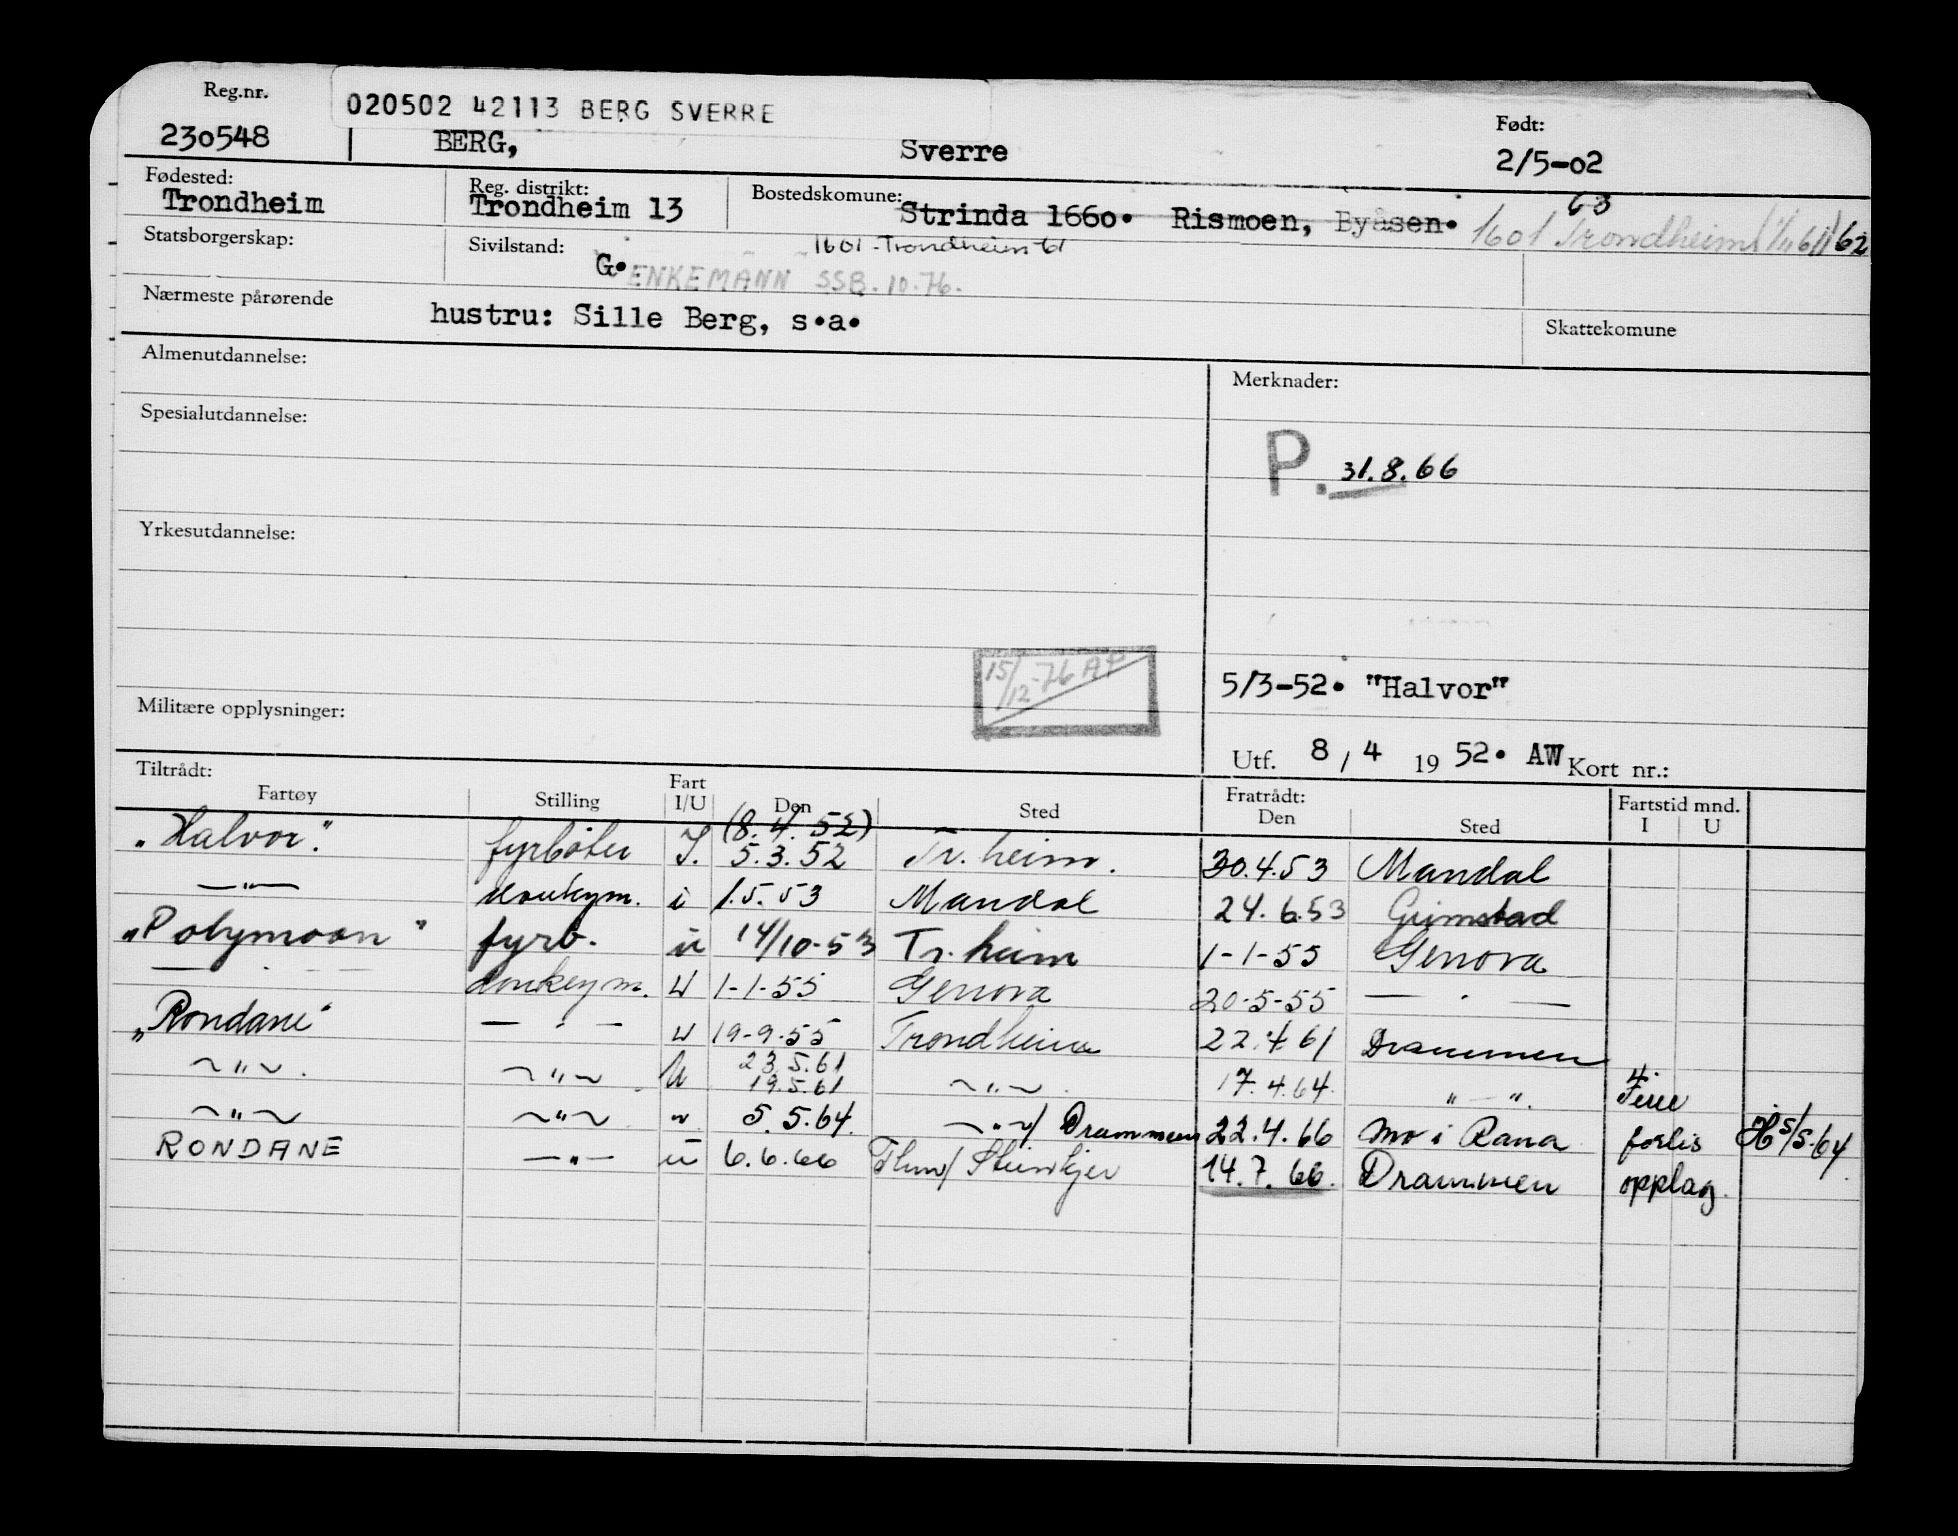 Reg.nr.
020502 42113 BERG SVERRE
230548 BERG, Sverre
Født:
2/5-02
Fødested:
Trondheim
Reg. distrikt:
Trondheim 13
Bostedskomune:
Strinda 1660. Rismoen, Byåsen.
63
1601 Trondheim 62
1601-Trondheim 61
Statsborgerskap:
Sivilstand:
G. ENKEMANN SSB.10.76.
Nærmeste pårørende
hustru: Sille Berg, s.a.
Skattekomune
Almenutdannelse:
Merknader:
Spesialutdannelse:
P. 31.8.66
Yrkesutdannelse:
15/12-76 AF
5/3-52. "Halvor"
Militære opplysninger:
Utf. 8/4 1952. AW Kort nr.:
Tiltrådt: Fartøy Stilling Fart I/U Den Sted Fratrådt: Den Sted Fartstid mnd. I U
(8.4.52)
"Halvor" fyrbøter I. 5.3.52 Tr.heim. 30.4.53 Mandal
—"— donkeym. i 1.5.53 Mandal 24.6.53 Grimstad
"Polymoon" fyrb. u 14/10-53 Tr.heim 1-1-55 Genova
— " — donkeym. U 1-1-55 Genova 20-5-55 — " —
"Rondane" — " — U 19-9-55 Trondheim 22.4.61 Drammen
23.5.61
—"— —"— U 19.5.61 —"— 17.4.64 —"— Ferie
—"— —"— " 5.5.64 —"—/Drammen 22.4.66 Mo i Rana forlis H 5/5.64
RONDANE —"— u 6.6.66 Thm/Steinkjer 14.7.66. Drammen opplag.